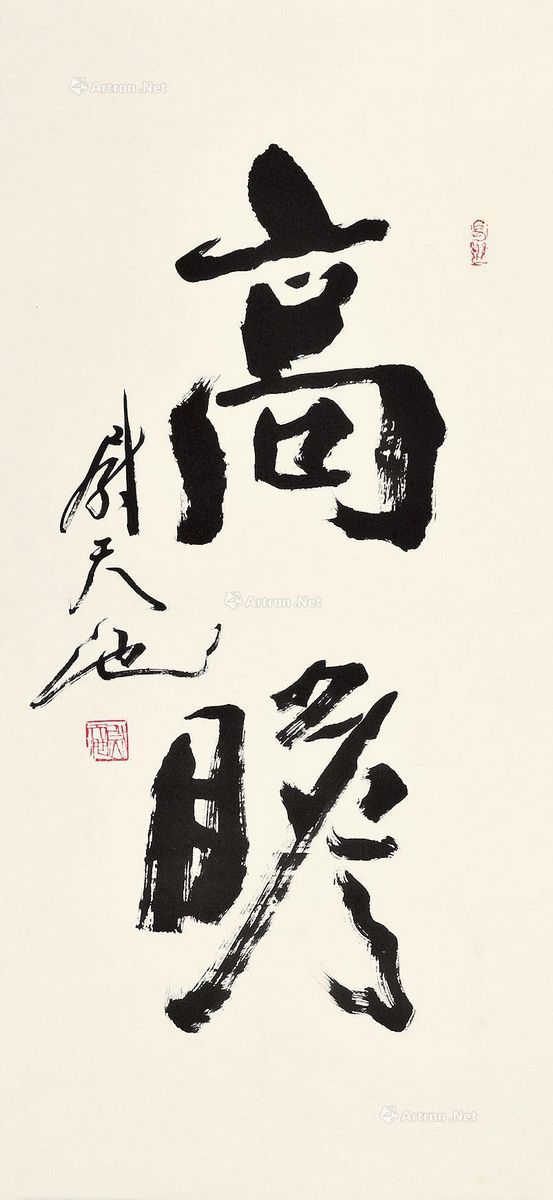 高瞻
尉天池
Artron.Net
Artron.Net
Artron.Net